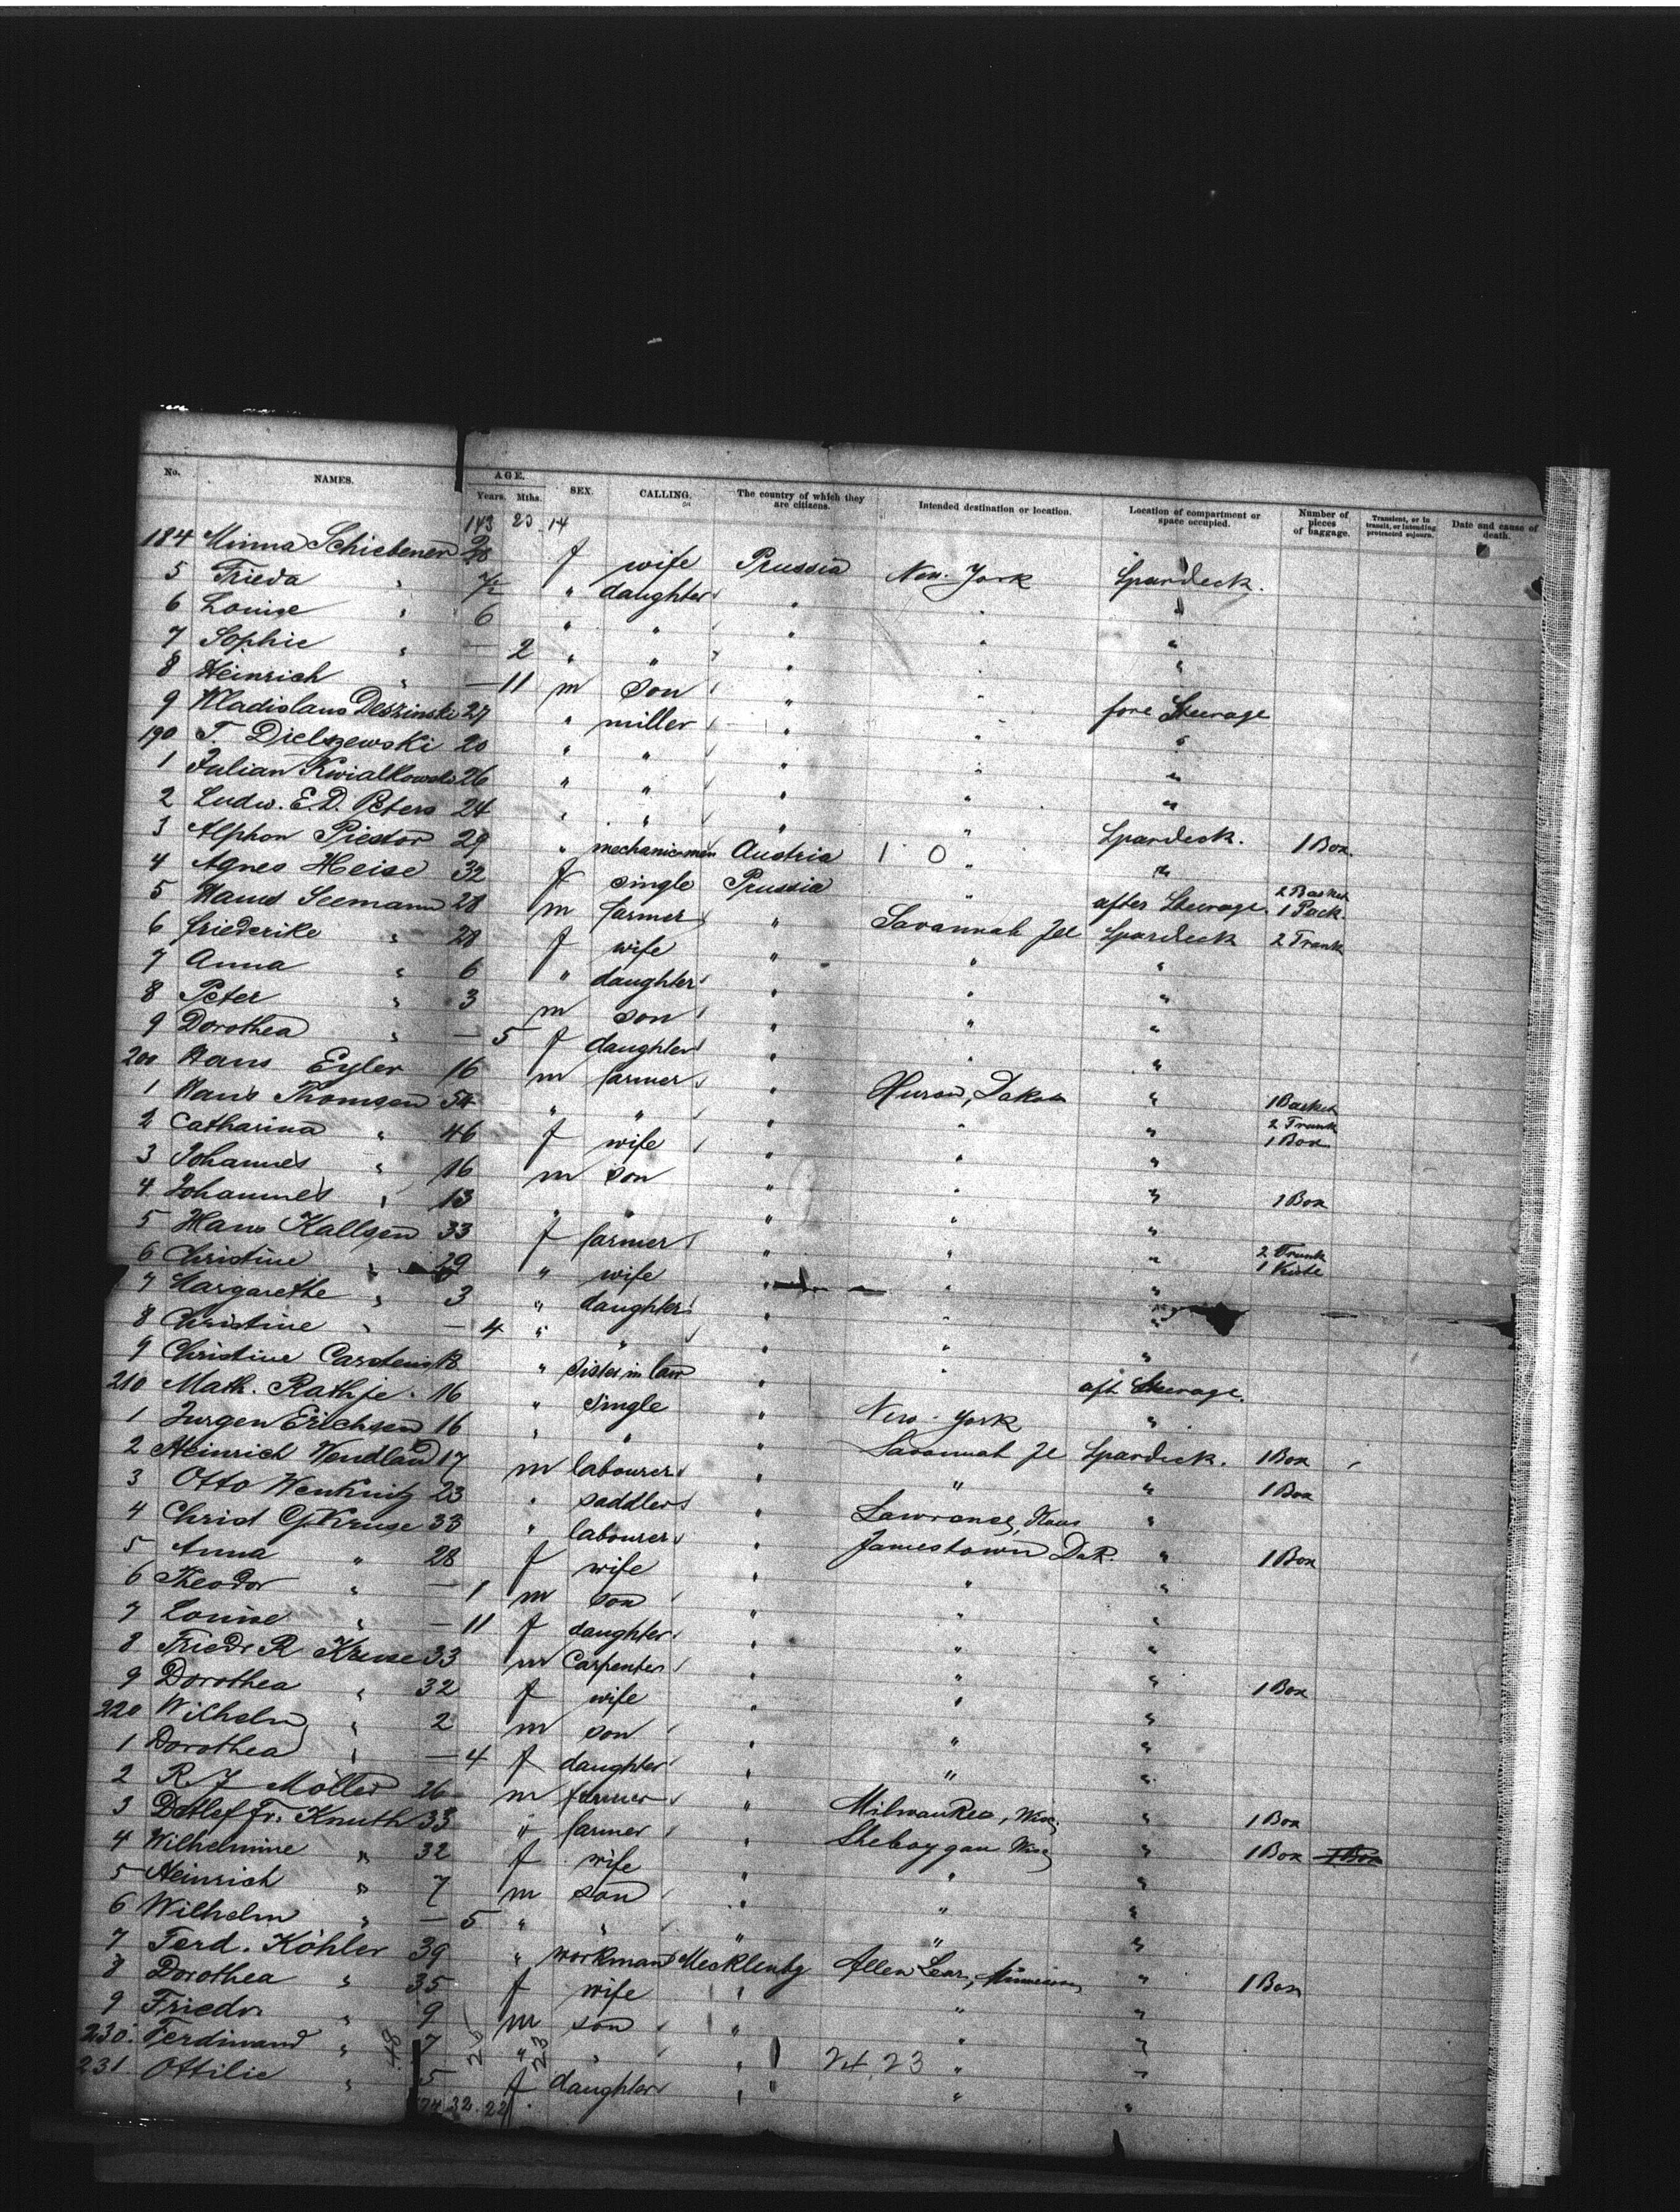 No. NAMES. AGE. Years. Mths. SEX. CALLING. The country of which they are citizens. Intended destination or location. Location of compartment or space occupied. Number of pieces of baggage. Transient, or in transit, or intending protracted sojourn. Date and cause of death.
143 20 14
184 Minna Schiebener 28 f wife Prussia New-York Spardeck.
5 Frieda " " daughter " " "
6 Louise " 6 " " " " "
7 Sophie " — 2 " " " " "
8 Heinrich " — 11 m son " " "
9 Wladislaus Deszinski 27 " miller " " fore Steerage
190 T. Dielszewski 20 " " " " "
1 Julian Kwialkowski 26 " " " " "
2 Ludw. E. D. Peters 24 " " " " "
3 Alphon Piestor 29 " mechanicmen Austria 1 0 " Spardeck. 1 Box.
4 Agnes Heise 32 f single Prussia " "
5 Hans Seemann 28 m farmer " Savannah Ill after Steerage. 2 Basket 1 Pack.
6 Friederike " 28 f wife " " Spardeck 2 Trunk
7 Anna " 6 " daughter " " "
8 Peter " 3 m son " " "
9 Dorothea " — 5 f daughter " " "
200 Hans Eyler 16 m farmer " " "
1 Hans Thomsen 54 " " " Huron, Dakota " 1 Basket 2 Trunk
2 Catharina " 46 f wife " " " 1 Box
3 Johannes " 16 m son " " "
4 Johannes " 13 " " " " " 1 Box
5 Hans Kallsen 33 f farmer " " " 2 Trunk
6 Christine " 29 " wife " " " 1 Kiste
7 Margarethe " 3 " daughter " " "
8 Christine " — 4 " " " " "
9 Christine Carstens 18 " sister in law " " "
210 Math. Rathje. 16 " single " New-York aft Steerage.
1 Jurgen Erichsen 16 " " " Savannah Ill "
2 Heinrich Wendland 17 m labourer " " Spardeck. 1 Box
3 Otto Wenknitz 23 " saddler " Lawrence, Kans " 1 Box
4 Christ G. Kruse 33 " labourer " Jamestown Dak. "
5 Anna " 28 f wife " " " 1 Box
6 Theodor " — 1 m son " " "
7 Louise " — 11 f daughter " " "
8 Friedr R Kruse 33 m Carpenter " " "
9 Dorothea " 32 f wife " " " 1 Box
220 Wilhelm " 2 m son " " "
1 Dorothea " — 4 f daughter " " "
2 R. J Möller 26 m farmer " Milwaukee, Wisc. " 1 Box
3 Detlef Fr. Knuth 33 " farmer " Sheboygan Wisc " 1 Box 1 Box
4 Wilhelmine " 32 f wife " " "
5 Heinrich " 7 m son " " "
6 Wilhelm " — 5 " " " " "
7 Ferd. Köhler 39 " workman Mecklenbg Allen " 1 Box
8 Dorothea " 35 f wife " " "
9 Friedr. " 9 m son " " "
230. Ferdinand " 7 " " " " "
231. Ottilie " 5 f daughter " " "
48 25 23 24 23
74 32. 22